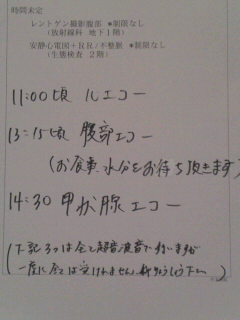 時間未定
レントゲン撮影腹部 *制限なし
(放射線科 地下1階)
安静心電図+RR/不整脈 *制限なし
(生態検査 2階)
11:00頃 心エコー
13:15頃 腹部エコー
(お食事、水分をお待ち頂きます)
14:30 甲状腺エコー
(下記3つは全て超音波室で行いますが
一度に全ては受けれません。